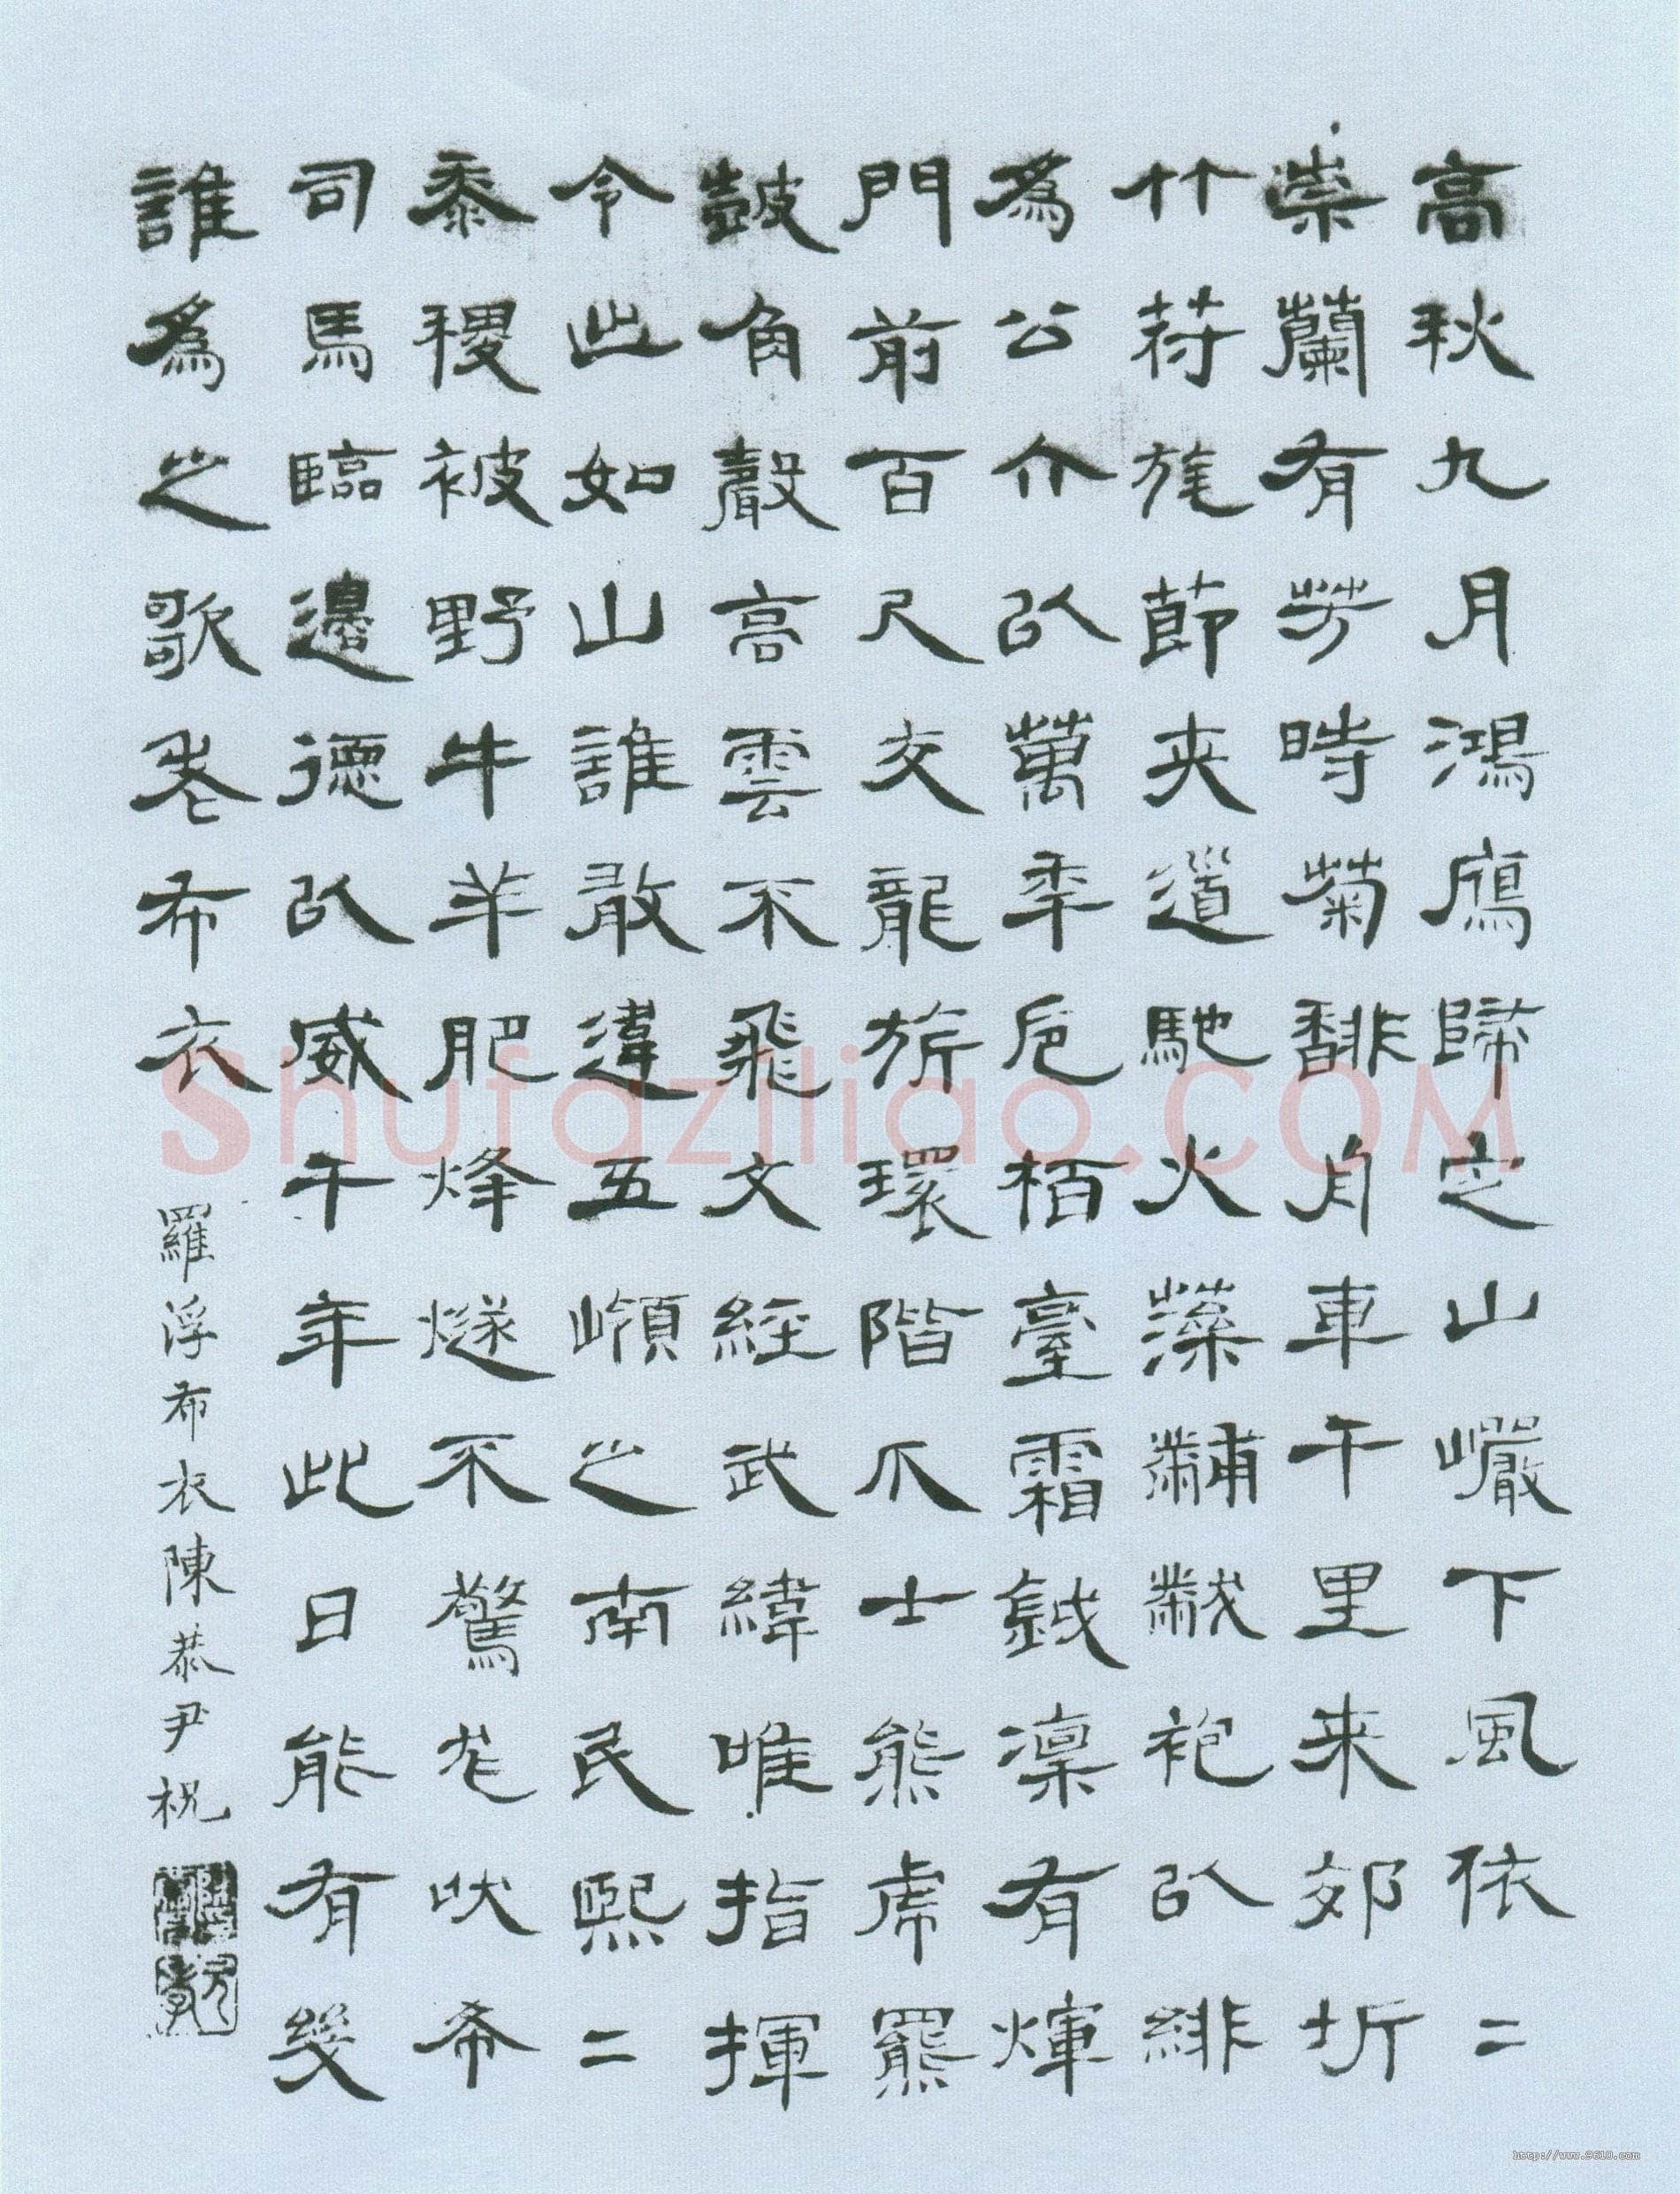 高秋九月鴻鴈歸定山巖下風依二
崇蘭有芳時菊馡舟車千里来郊圻
竹符旄節夾道馳火藻黼黻袍以緋
為公介以萬年卮栢臺霜鉞凛有煇
門前百尺交龍旂環階爪士熊虎羆
鼓角聲高雲不飛文經武緯唯指揮
令出如山誰敢違五嶺之南民熙二
黍稷被野牛羊肥烽燧不驚尨吠希
司馬臨邊德以威千年此日能有幾
誰為之歌老布衣
羅浮布衣陳恭尹祝
shufaziliao.COM
http://www.9610.com